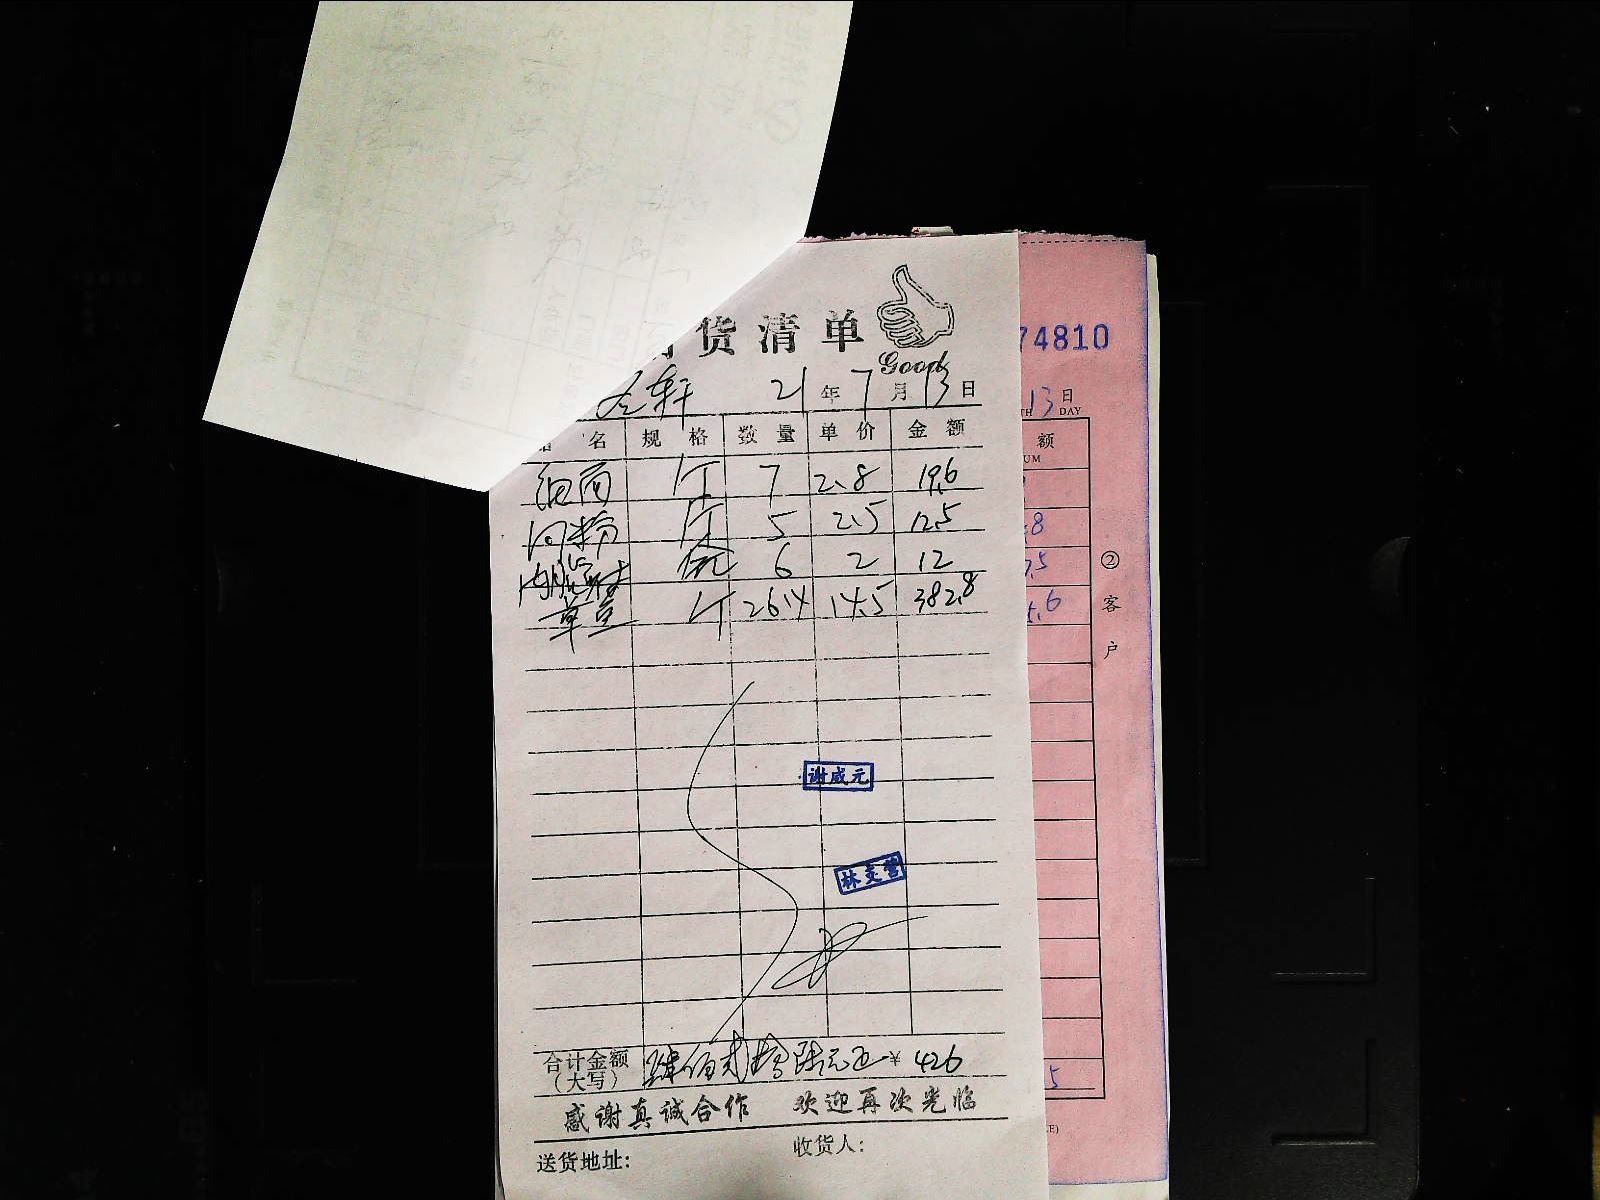 货清单
Good
74810
轩 21年7月13日
13日
TH DAY
名 规格 数量 单价 金额
额
UM
斤 7 2.8 19.6
粉 斤 5 2.5 12.5
.8
6 2 12
.5
斤 26.4 14.5 382.8
.6
②客户
谢威元
合计金额 肆佰贰拾陆元正 ¥ 426
(大写)
5
感谢真诚合作 欢迎再次光临
收货人:
送货地址: